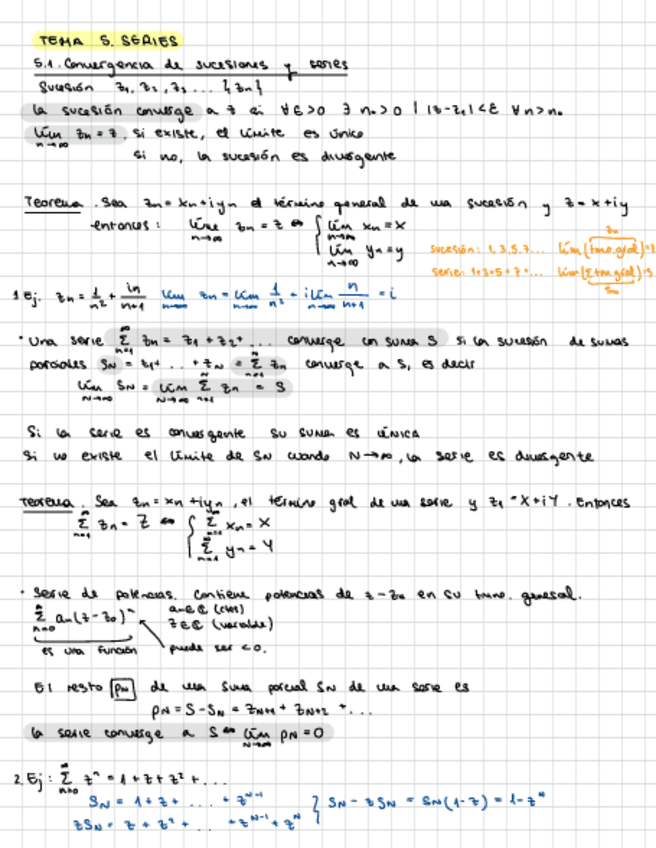 TEMA 5. SERIES
5.1. Convergencia de sucesiones y series
Sucesión z₁, z₂, z₃ ... {zₙ}
La sucesión converge a z si ∀ε>0 ∃ n₀>0 | |z-zₙ|<ε ∀n>n₀
lim n→∞ zₙ = z, si existe, el límite es único
si no, la sucesión es divergente
Teorema. Sea zₙ = xₙ+iyₙ el término general de una sucesión y z=x+iy
entonces: lim n→∞ zₙ = z ⇔ { lim n→∞ xₙ = x
lim n→∞ yₙ = y
sucesión: 1,3,5,7... lim(
serie: 1+3+5+7+...
1 Ej. zₙ = 1/n² + in/n+1 lim n→∞ zₙ = lim n→∞ 1/n² + i lim n→∞ n/n+1 = i
· Una serie ∞ Σ n=1 zₙ = z₁ + z₂ + ... converge con suma S si la sucesión de sumas
parciales S_N = z₁ + ... + z_N = Σ n=1 zₙ converge a S, es decir
lim N→∞ S_N = lim N→∞ Σ n=1 zₙ = S
Si la serie es convergente su suma es ÚNICA
Si no existe el límite de S_N cuando N→∞, la serie es divergente
Teorema. Sea zₙ = xₙ + iyₙ, el término gral de una serie y = X+iY. Entonces
∞ Σ n=1 zₙ = Z ⇔ { ∞ Σ n=1 xₙ = X
∞ Σ n=1 yₙ = Y
· Serie de potencias. Contiene potencias de z-z₀ en su general.
∞ Σ n=0 aₙ(z-z₀)ⁿ aₙ∈ℂ (ctes)
z∈ℂ (variable)
es una función puede ser <0.
El resto ρ_N de una suma parcial S_N de una serie es
ρ_N = S - S_N = z_N+1 + z_N+2 + ...
La serie converge a S ⇔ lim N→∞ ρ_N = 0
2. Ej: ∞ Σ n=0 zⁿ = 1+z+z²+...
S_N = 1+z+ ... + z^N-1 } S_N - zS_N = S_N(1-z) = 1-z^N
zS_N = z+z²+ ... + z^N-1 + z^N